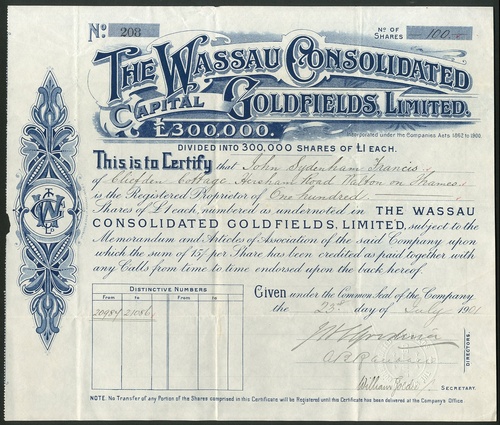 No. 208
No OF SHARES 100
THE WASSAU CONSOLIDATED
GOLDFIELDS, LIMITED.
CAPITAL
£300,000.
Incorporated under the Companies Acts 1862 to 1900.
DIVIDED INTO 300,000 SHARES OF £1 EACH.
This is to Certify that John Sydenham Francis
of Cottage Hersham Road Walton on Thames
is the Registered Proprietor of One hundred
Shares of £1 each, numbered as undernoted in THE WASSAU
CONSOLIDATED GOLDFIELDS, LIMITED, subject to the
Memorandum and Articles of Association of the said Company upon
which the sum of 15/- per Share has been credited as paid together with
any Calls from time to time endorsed upon the back hereof.
DISTINCTIVE NUMBERS
From to From to
20987 21086
Given under the Common Seal of the Company
the 23rd day of July 1901
DIRECTORS.
William
SECRETARY.
NOTE. No Transfer of any Portion of the Shares comprised in this Certificate will be Registered until this Certificate has been delivered at the Company's Office.